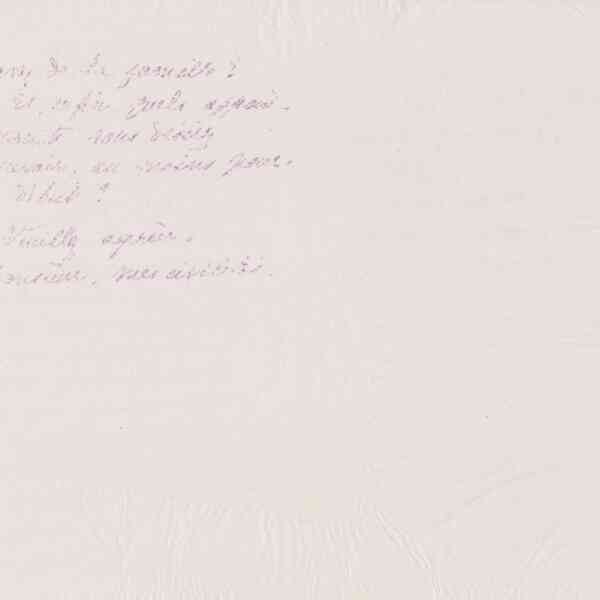 de la famille ?
Et, enfin quels appoin-
vous désirez
au moins pour
début ?
Veuillez agréer,
Monsieur, mes civilités.